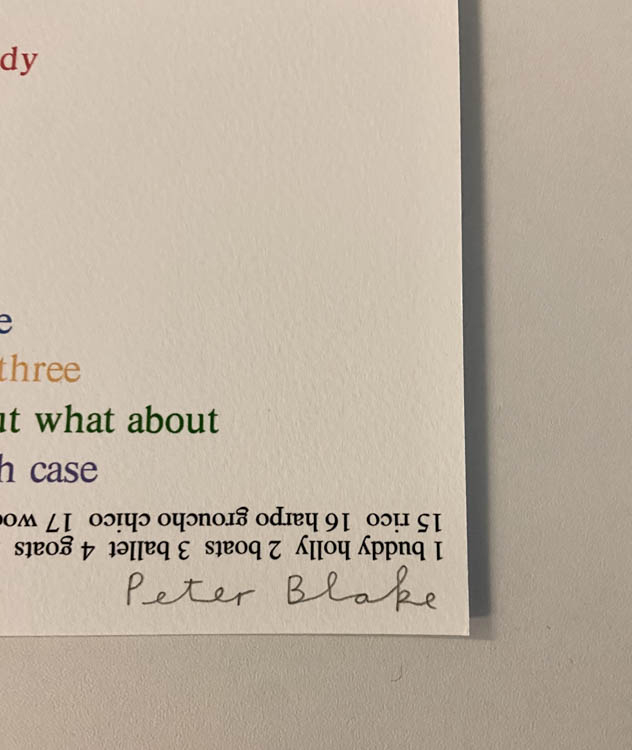 dy
e
three
ut what about
h case
1 buddy holly 2 boats 3 ballet 4 goats
15 rico 16 harpo groucho chico 17 woo
Peter Blake